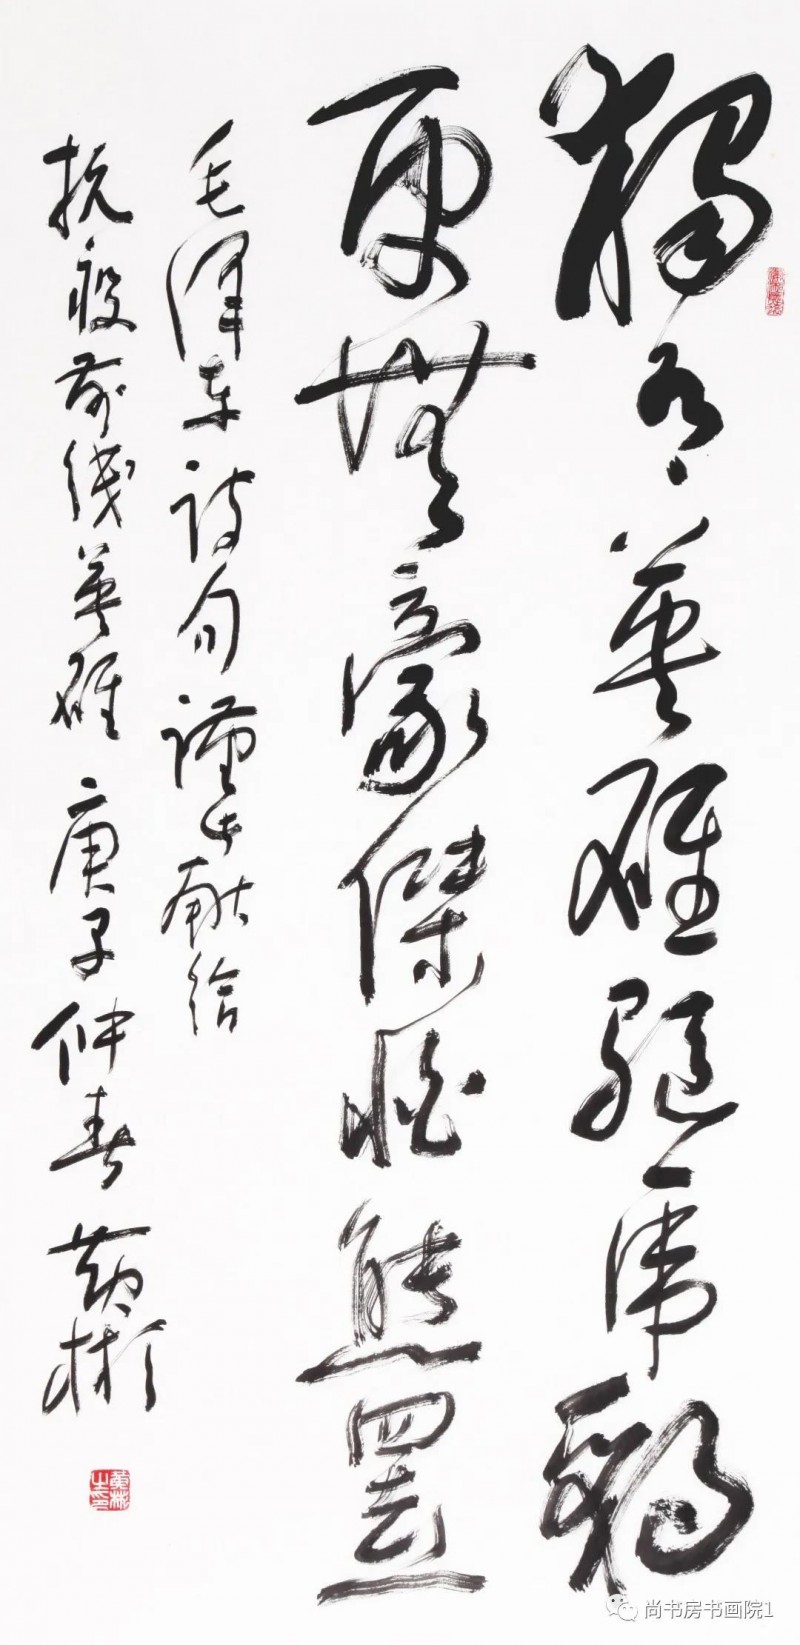 獨有英雄驅虎豹
更無豪傑怕熊羆
毛泽东诗句谨以献给
抗疫前线英雄 庚子仲春 黄彬
尚书房书画院1